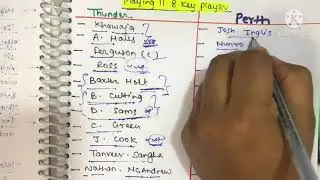 Playing 11 & Key player
Thunder
Khawaja
A. Hales
Ferguson (C)
Ross
Baxter Holt
B. Cutting
D. Sams
C. Green
J. Cook
Tanveer Sangha
Nathan McAndrew
Perth
Josh Inglis
Munro